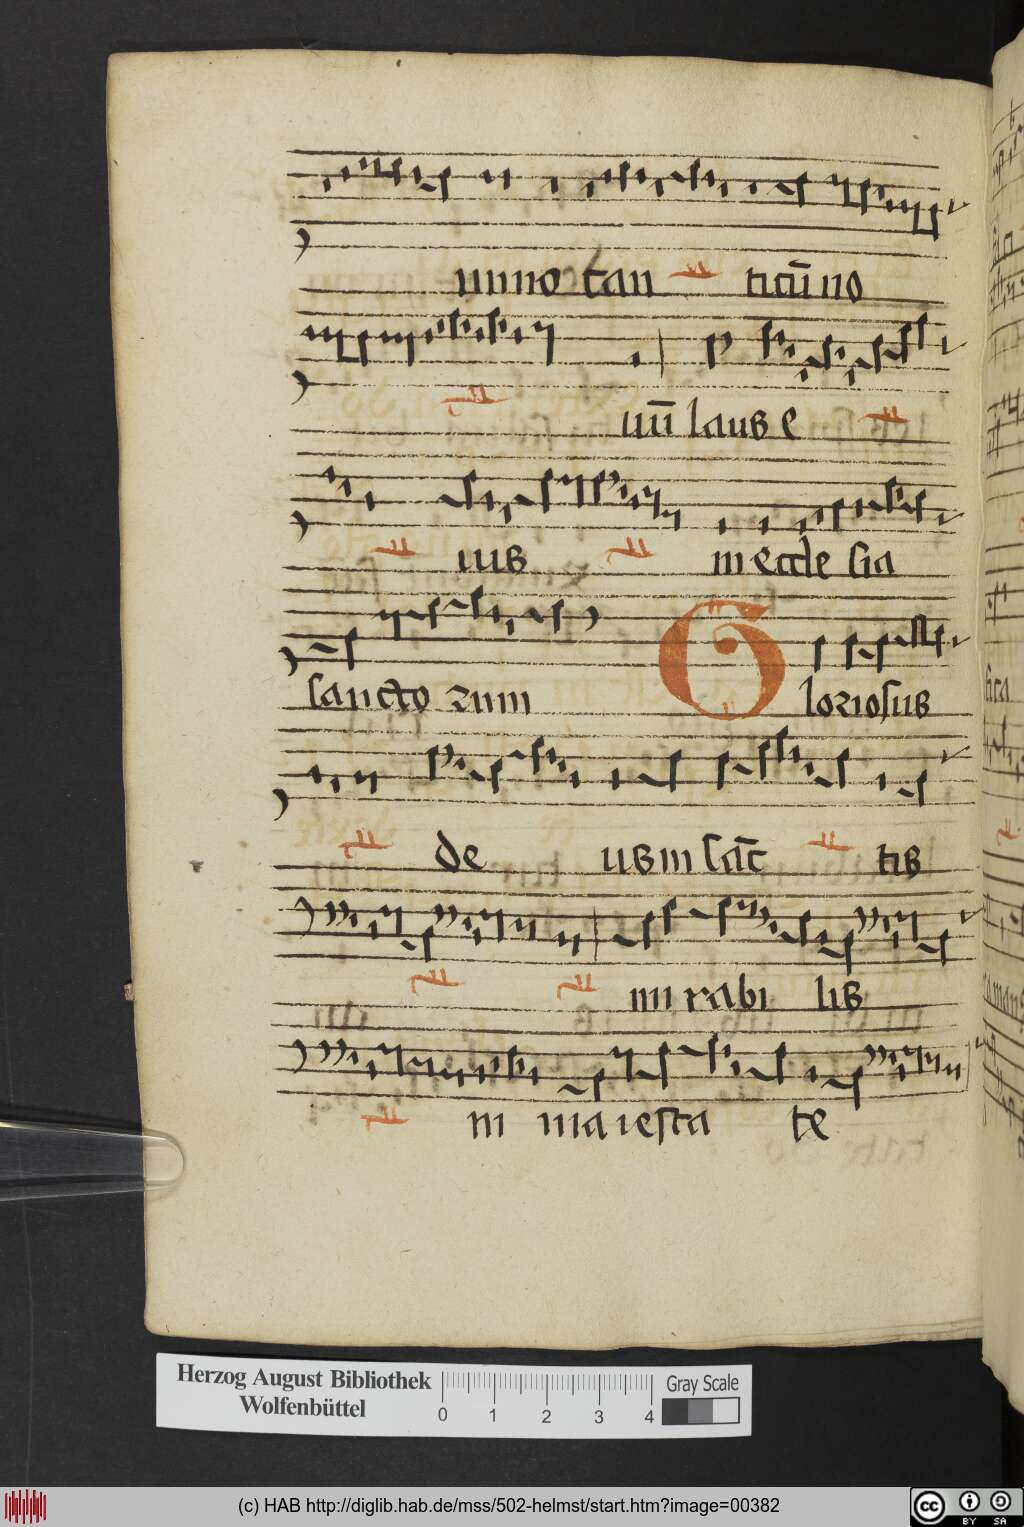 mino can ticū no
uū laus e
ius in eccle sia
sancto rum Gloriosus
de us in sāc tis
mi rabi lis
in maiesta te
Herzog August Bibliothek
Wolfenbüttel
0 1 2 3 4
Gray Scale
(c) HAB http://diglib.hab.de/mss/502-helmst/start.htm?image=00382
cc BY SA